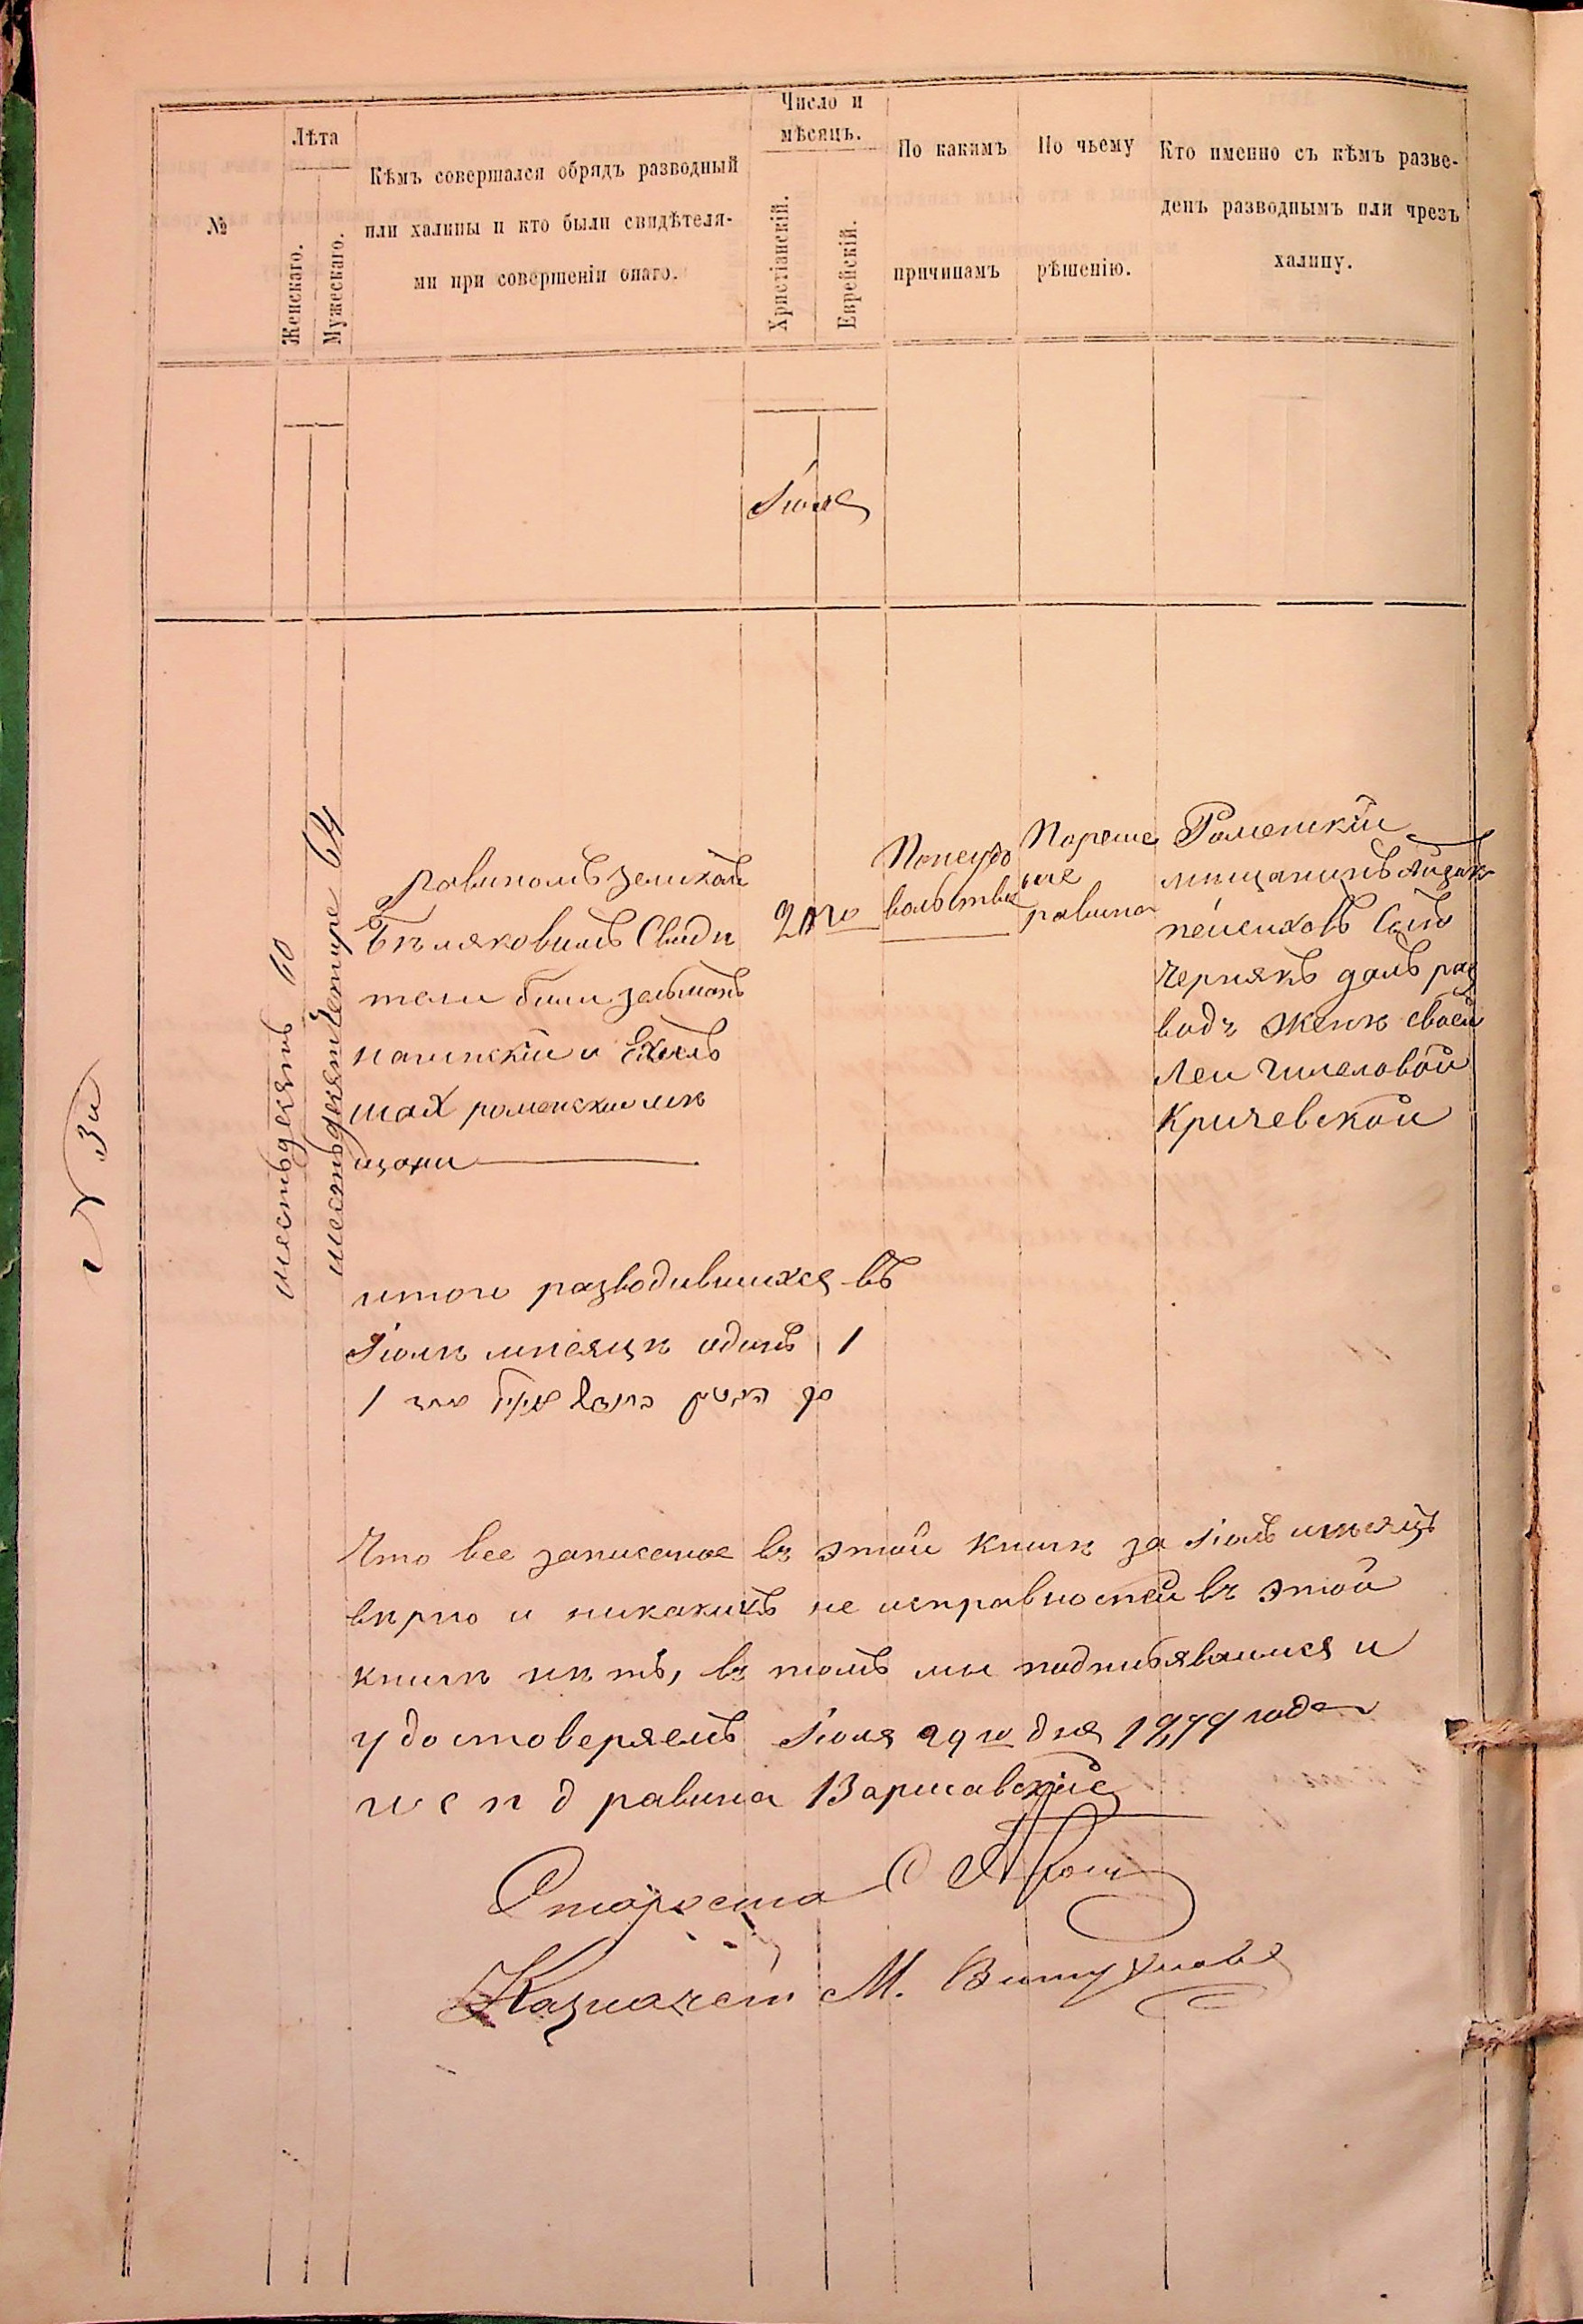 №
Лѣта
Женскаго.
Мужескаго.
Кѣмъ совершался обрядъ разводный
или халицы и кто были свидѣтеля-
ми при совершеніи онаго.
Число и
мѣсяцъ.
Христіанскій.
Еврейскій.
По какимъ
причинамъ
По чьему
рѣшенію.
Кто именно съ кѣмъ разве-
денъ разводнымъ или чрезъ
халицу.
Іюля
№ 3й
шестьдесятъ 60
шестьдесятъчетыре 64
равиномъ
Бѣляковимъ Свидѣ
тели били зельманъ
и
шах роменскии мѣ
щани
2го
Понеудо
вольствы
Пореше
ние
равина
Роменскій
мѣщанинъ Айзикъ
Сынъ
Чернякъ далъ раз
водъ женѣ своей
Леи
Кричевской
итого разводившихся въ
Іюлѣ мѣсяцѣ одинъ 1
Что все записаное въ этой книгѣ за Іюль мѣсяцъ
вѣрно и никакихъ не исправностей въ этой
книгѣ нѣтъ, въ томъ мы и
удостоверяемъ Іюля 29го дня 1879 года
и с п д равина Варшавскіе
Староста
Казначей М.